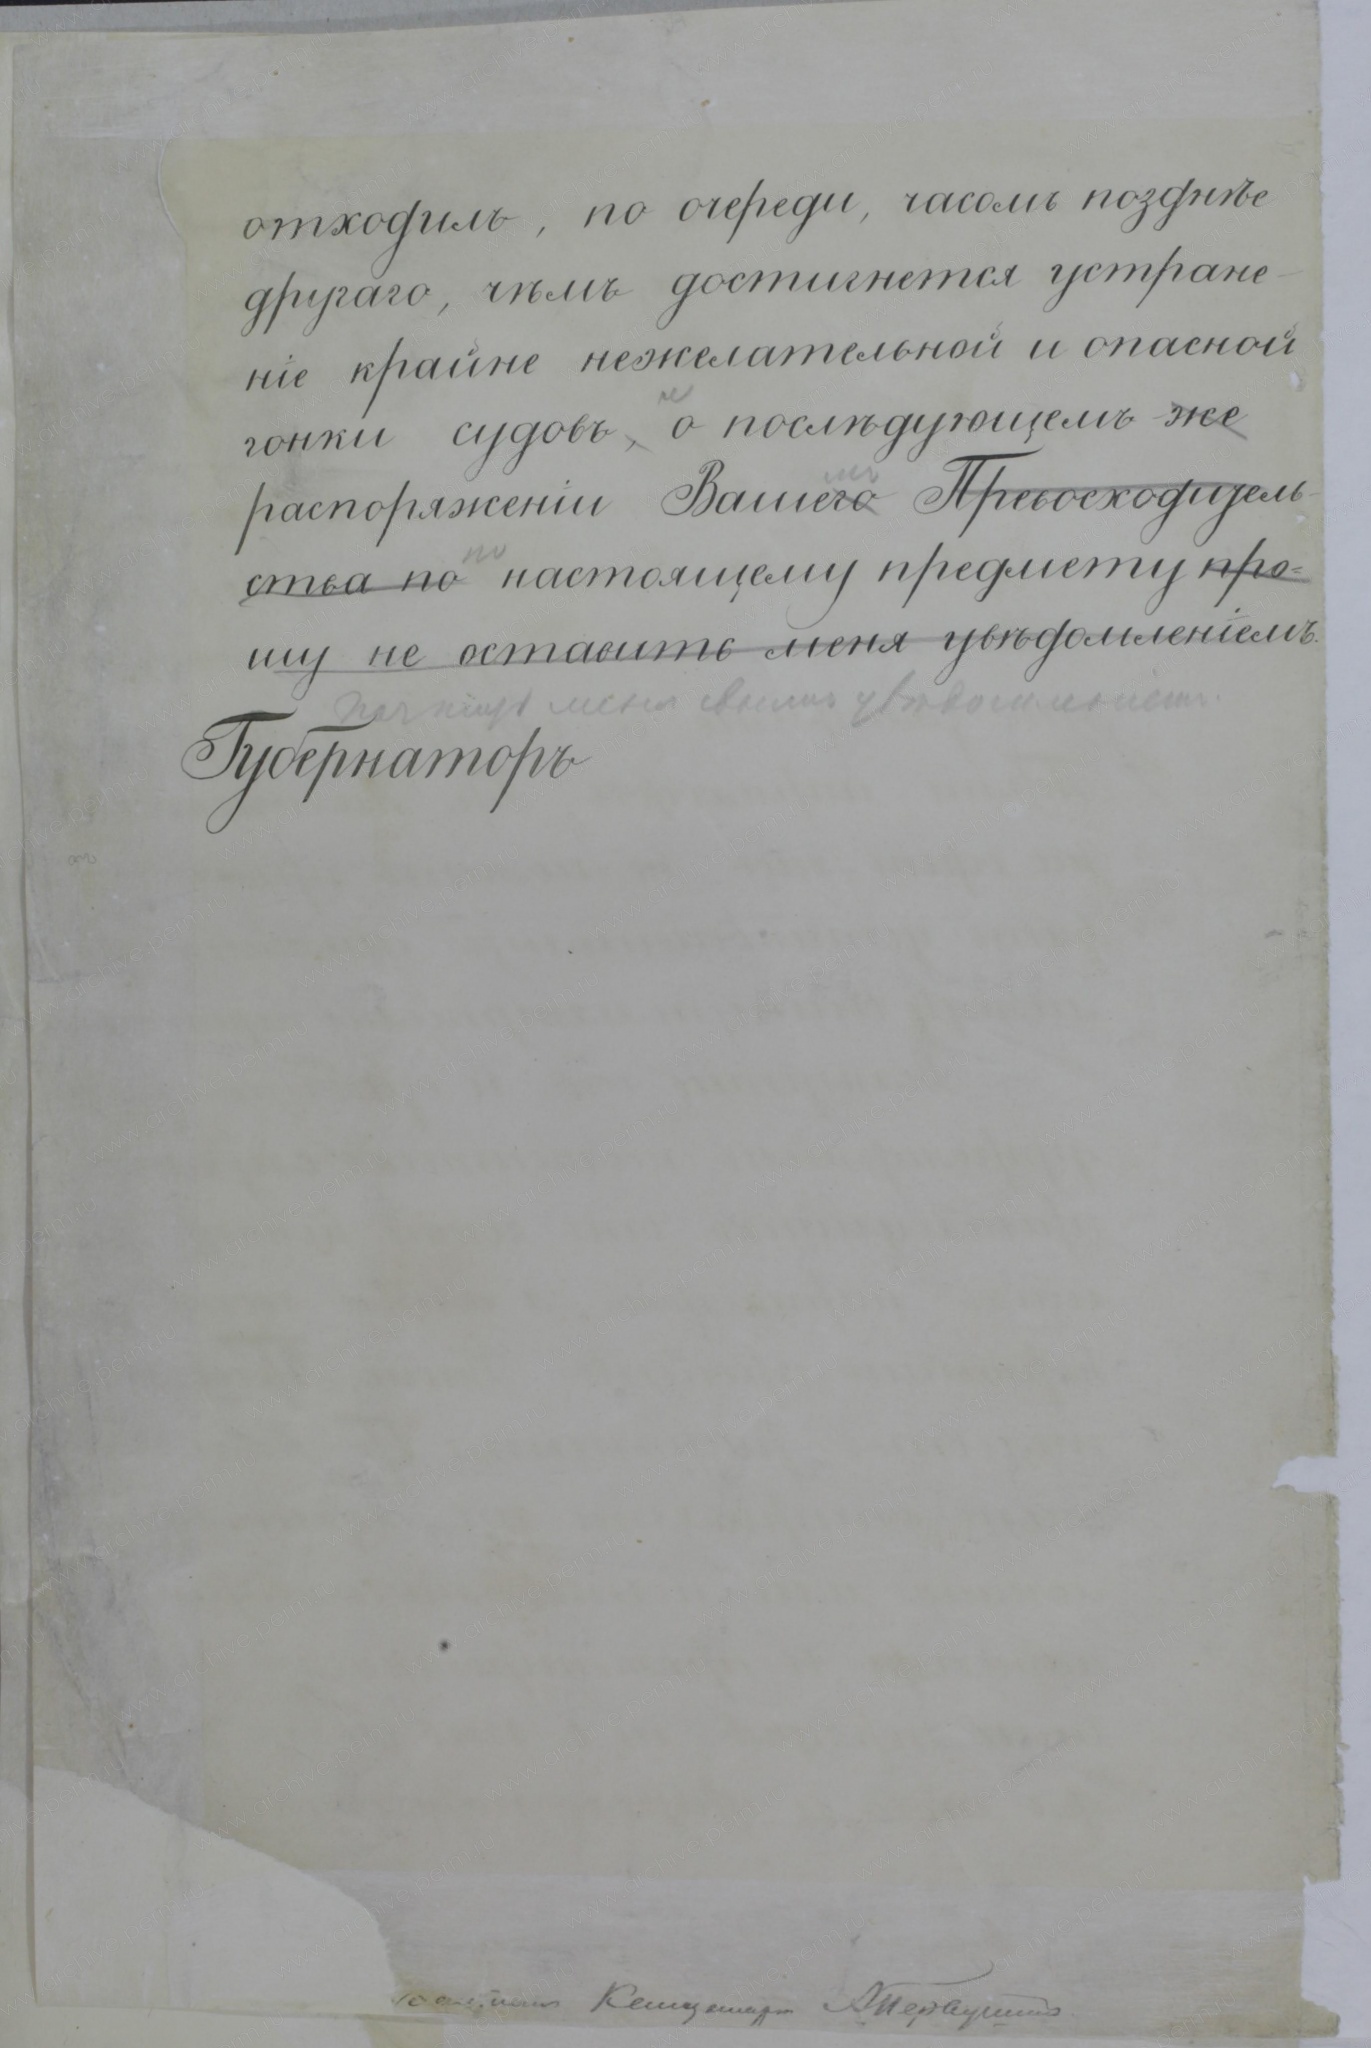 отходилъ, по очереди, часомъ позднѣе
другаго, чѣмъ достигнется устране-
ніе крайне нежелательной и опасной
гонки судовъ, о послѣдующемъ же
распоряженіи Вашего Превосходитель-
ства по настоящему предмету про-
шу не оставить меня увѣдомленіемъ.
меня увѣдомленіемъ.
Губернаторъ